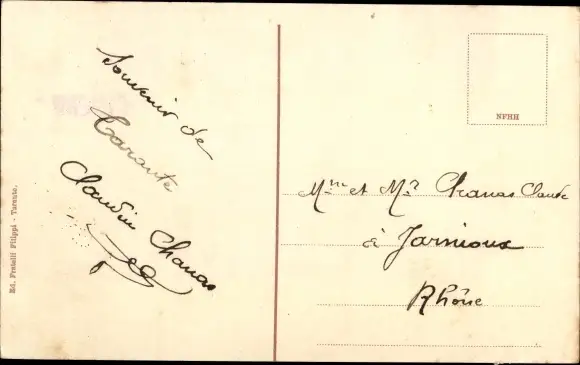 Souvenir de
Tarente
Claudin Chanas
Ed. Fratelli Filippi - Taranto.
NFHH
Mme et Mr Chanas Claude
à Jarnioux
Rhône